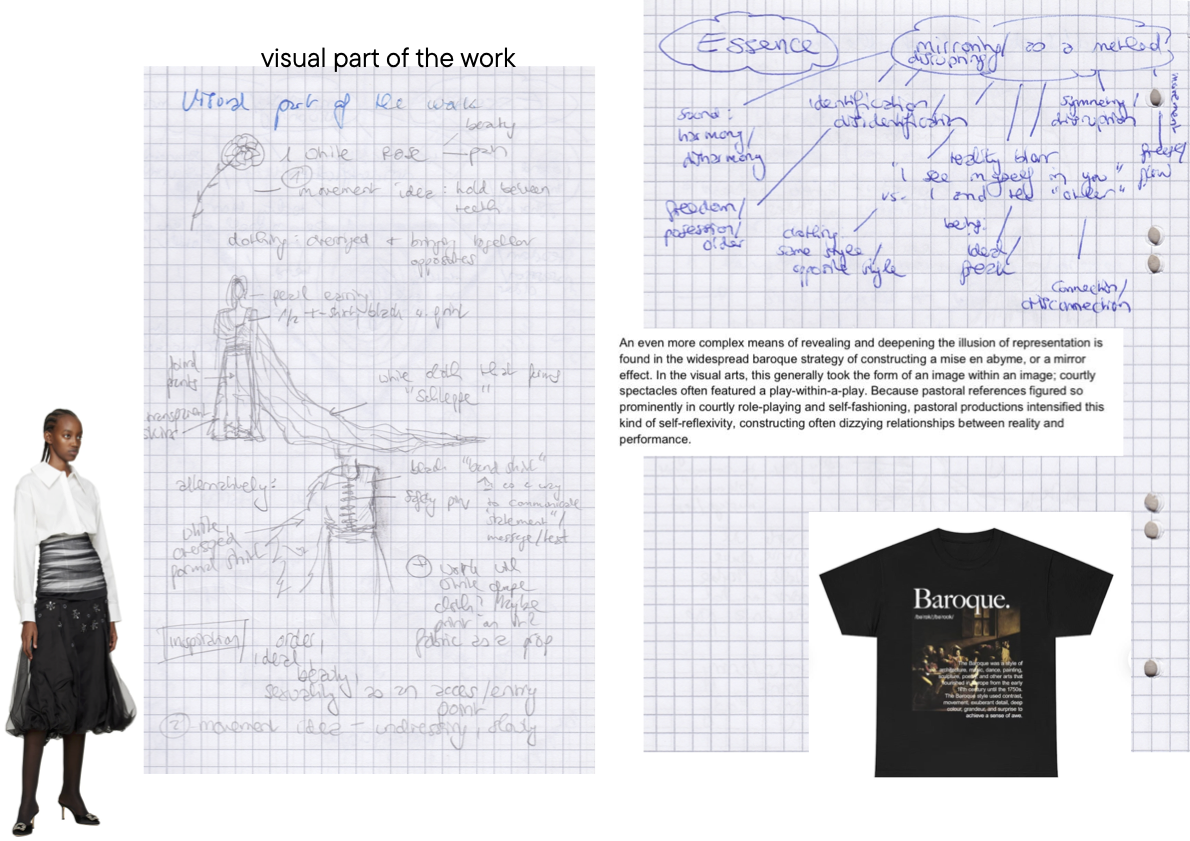 visual part of the work
Visual part of the work
beauty
1 white Rose
pain
1
movement idea: hold between
teeth
clothing: dressed + brings together
opposites
pearl earring
1/2 t-shirt black w. print
transparent
skirt
white cloth that forms
"Schleppe"
alternatively:
black "band shirt"
as a way
safety pin
to communicate
"statement"/
message/text
white
formal shirt
+ work with
white
cloth? Maybe
print on it?
fabric as a prop
Inspiration
order,
ideal,
beauty
sensuality as an access/entry
point
2 movement idea - undressing, slowly
Essence
mirroring/
disrupting
as a method?
movement
sound:
harmony/
disharmony
identification/
disidentification
symmetry/
disruption
freeze/
flow
reality blur
"I see myself in you"
vs. I and the "other"
freedom/
possession/
order
clothing
same style/
opposite style
being:
ideal/
freak
connection/
disconnection
An even more complex means of revealing and deepening the illusion of representation is
found in the widespread baroque strategy of constructing a mise en abyme, or a mirror
effect. In the visual arts, this generally took the form of an image within an image; courtly
spectacles often featured a play-within-a-play. Because pastoral references figured so
prominently in courtly role-playing and self-fashioning, pastoral productions intensified this
kind of self-reflexivity, constructing often dizzying relationships between reality and
performance.
Baroque.
The Baroque was a style of
architecture, music, dance, painting,
sculpture, poetry, and other arts that
flourished in Europe from the early
17th century until the 1750s.
The Baroque style used contrast,
movement, exuberant detail, deep
colour, grandeur, and surprise to
achieve a sense of awe.